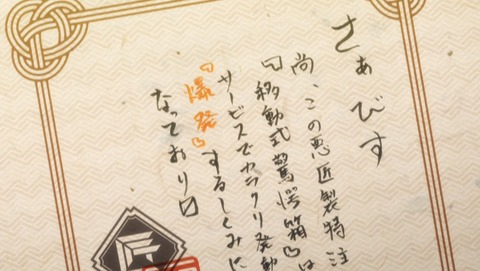 さぁびす
尚、この悪匠製特注
『移動式驚愕箱』は
サービスでカラクリ発動
『爆発』するしくみに
なっており〼